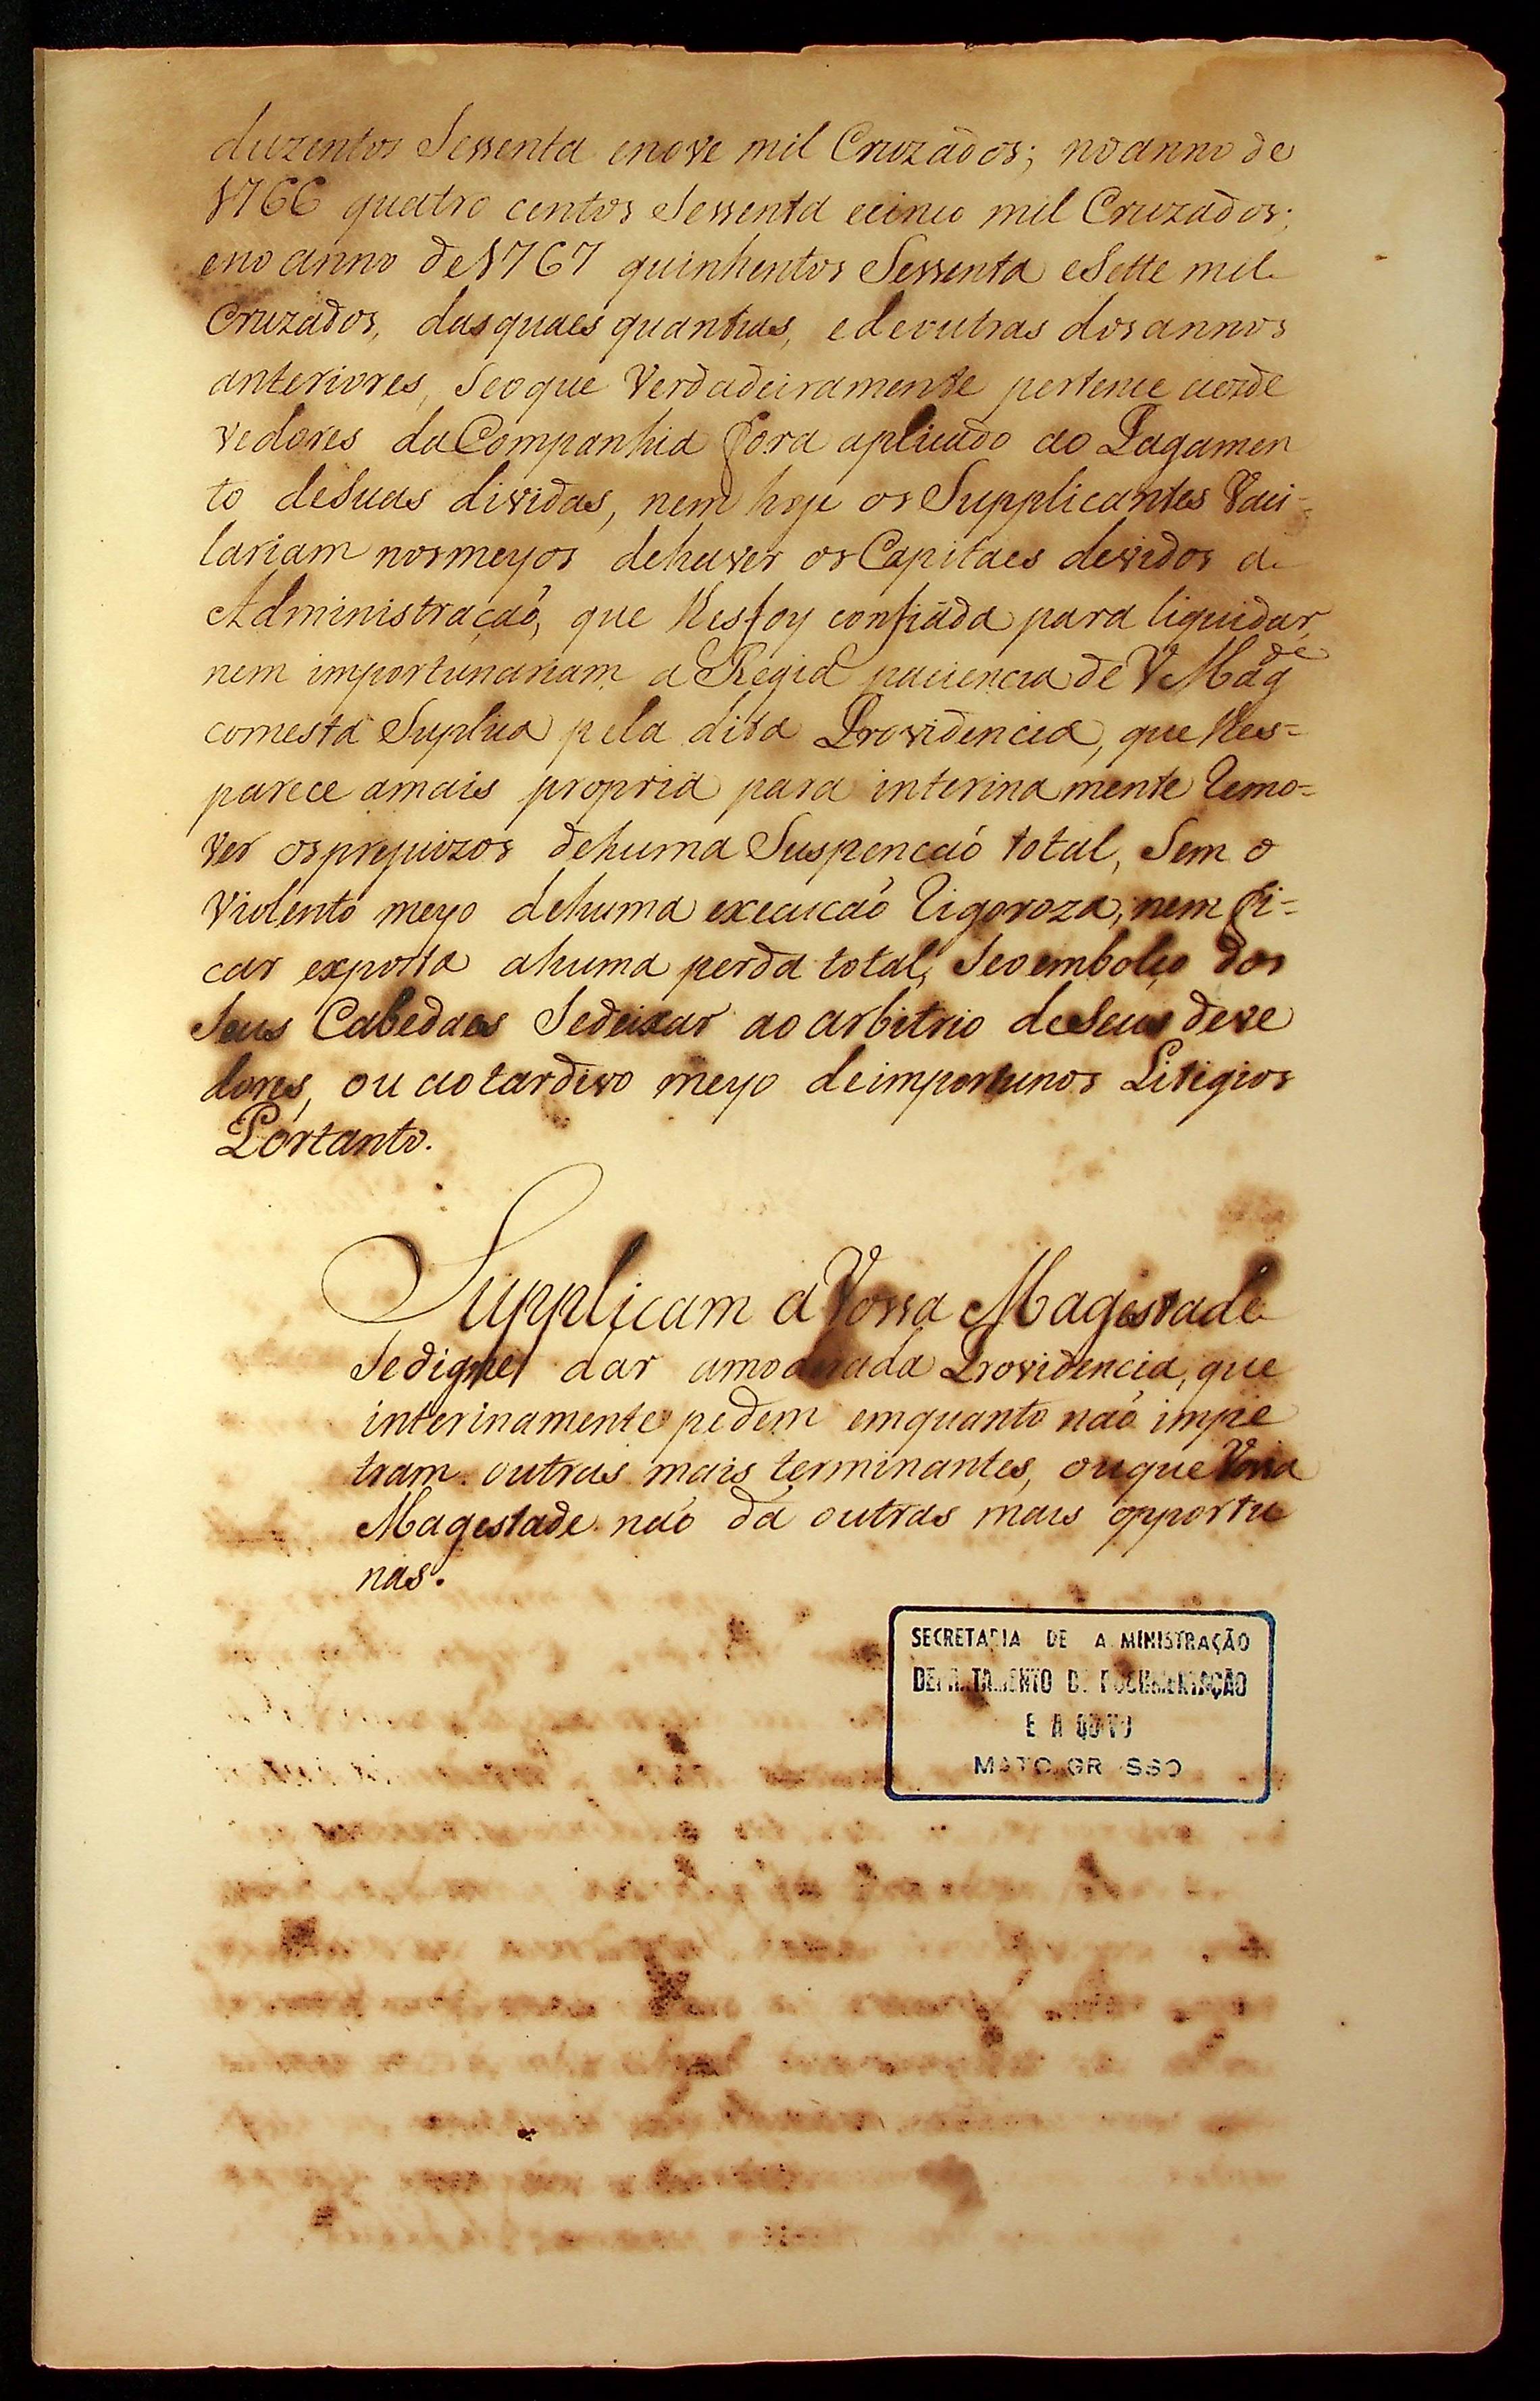 duzentos Sessenta enove mil Cruzados; noanno de
1766 quatro centos Sessenta ecinco mil Cruzados;
eno anno de1767 quinhentos Sessenta eSette mil
Cruzados, dasquaes quantias, edeoutras dosannos
anteriores, Seoque Verdadeiramente pertence aosde
vedores daCompanhia fora aplicado ao Pagamen
to deSuas dividas, nem hoje os Supplicantes Vaci=
lariam nosmeyos dehaver os Capitaes devidos a
Administraçaõ, que lhesfoy confiada para liquidar,
nem importunariam a Regia paciencia de V Mag.de
comesta Suplica pela dita Providencia, que lhes=
parece amais propria para interinamente remo=
ver osprejuizos dehuma Suspencaõ total, Sem o
Violento meyo dehuma execucaõ rigoroza, nem fi=
car exposta ahuma perda total, Seoembolço dos
Seus Cabedaes Sedeixar ao arbitrio deSeus deve
dores, ou aotardivo meyo deimportunos Litigios
Portanto.
Supplicam aVossa Magestade
Sedigne dar amoderada Providencia, que
interinamente pedem emquanto naõ impe
tram outras mais terminantes, ouque Vossa
Magestade naõ dá outras mais opportu
nas.
SECRETARIA DE A MINISTRAÇÃO
DEPARTAMENTO DE DOCUMENTAÇÃO
E A QUIVO
MATO GR SSO